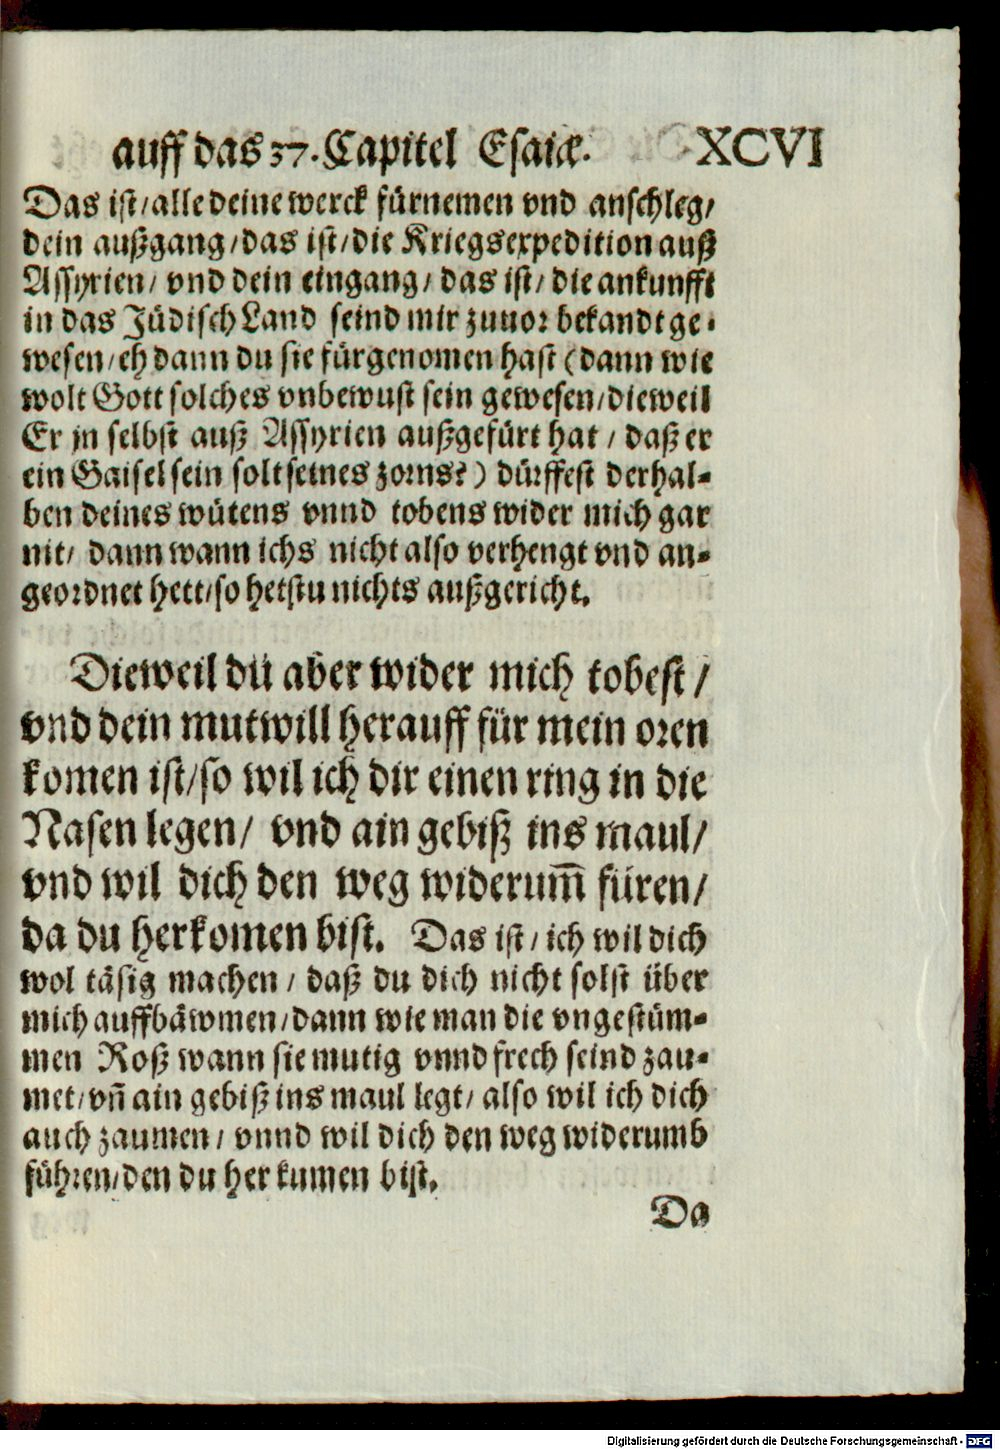 auff das 37. Capitel Esaiæ. XCVI
Das ist/ alle deine werck fürnemen vnd anschleg/
dein außgang/ das ist/ die Kriegsexpedition auß
Assyrien/ vnd dein eingang/ das ist/ die ankunfft
in das Jüdisch Land seind mir zuuor bekandt ge-
wesen/ eh dann du sie fürgenomen hast (dann wie
wolt Gott solches vnbewust sein gewesen/ dieweil
Er jn selbst auß Assyrien außgefürt hat / daß er
ein Gaisel sein solt seines zorns?) dürffest derhal-
ben deines wütens vnnd tobens wider mich gar
nit/ dann wann ichs nicht also verhengt vnd an-
geordnet hett/ so hetstu nichts außgericht.
Dieweil dü aber wider mich tobest/
vnd dein mutwill herauff für mein oren
komen ist/ so wil ich dir einen ring in die
Nasen legen/ vnd ain gebiß ins maul/
vnd wil dich den weg widerum̃ füren/
da du herkomen bist. Das ist/ ich wil dich
wol täsig machen/ daß du dich nicht solst über
mich auffbäwmen/ dann wie man die vngestüm-
men Roß wann sie mutig vnnd frech seind zau-
met/ vñ ain gebiß ins maul legt/ also wil ich dich
auch zaumen/ vnnd wil dich den weg widerumb
führen/ den du her kumen bist.
Da
Digitalisierung gefördert durch die Deutsche Forschungsgemeinschaft - DFG